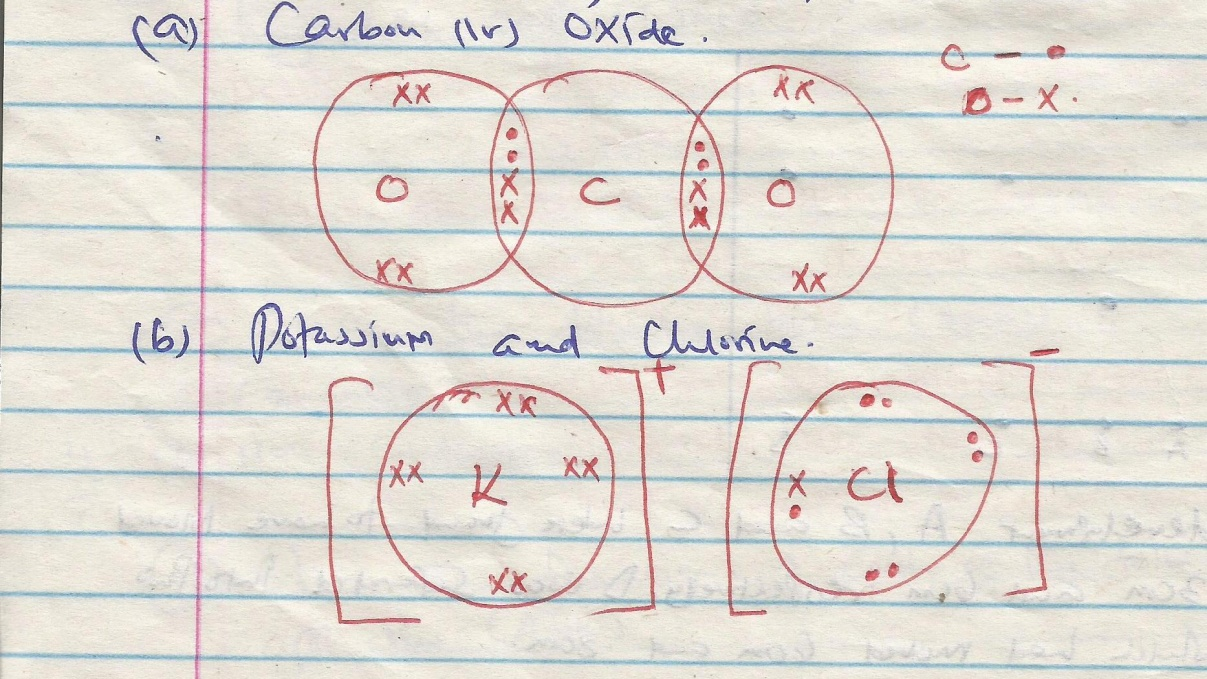 (a) Carbon (IV) Oxide.
C – •
O – x.
xx xx
• •
• •
O x C x O
x x
xx xx
(b) Potassium and Chlorine.
+ –
xx • •
xx K xx x Cl • •
•
xx • •